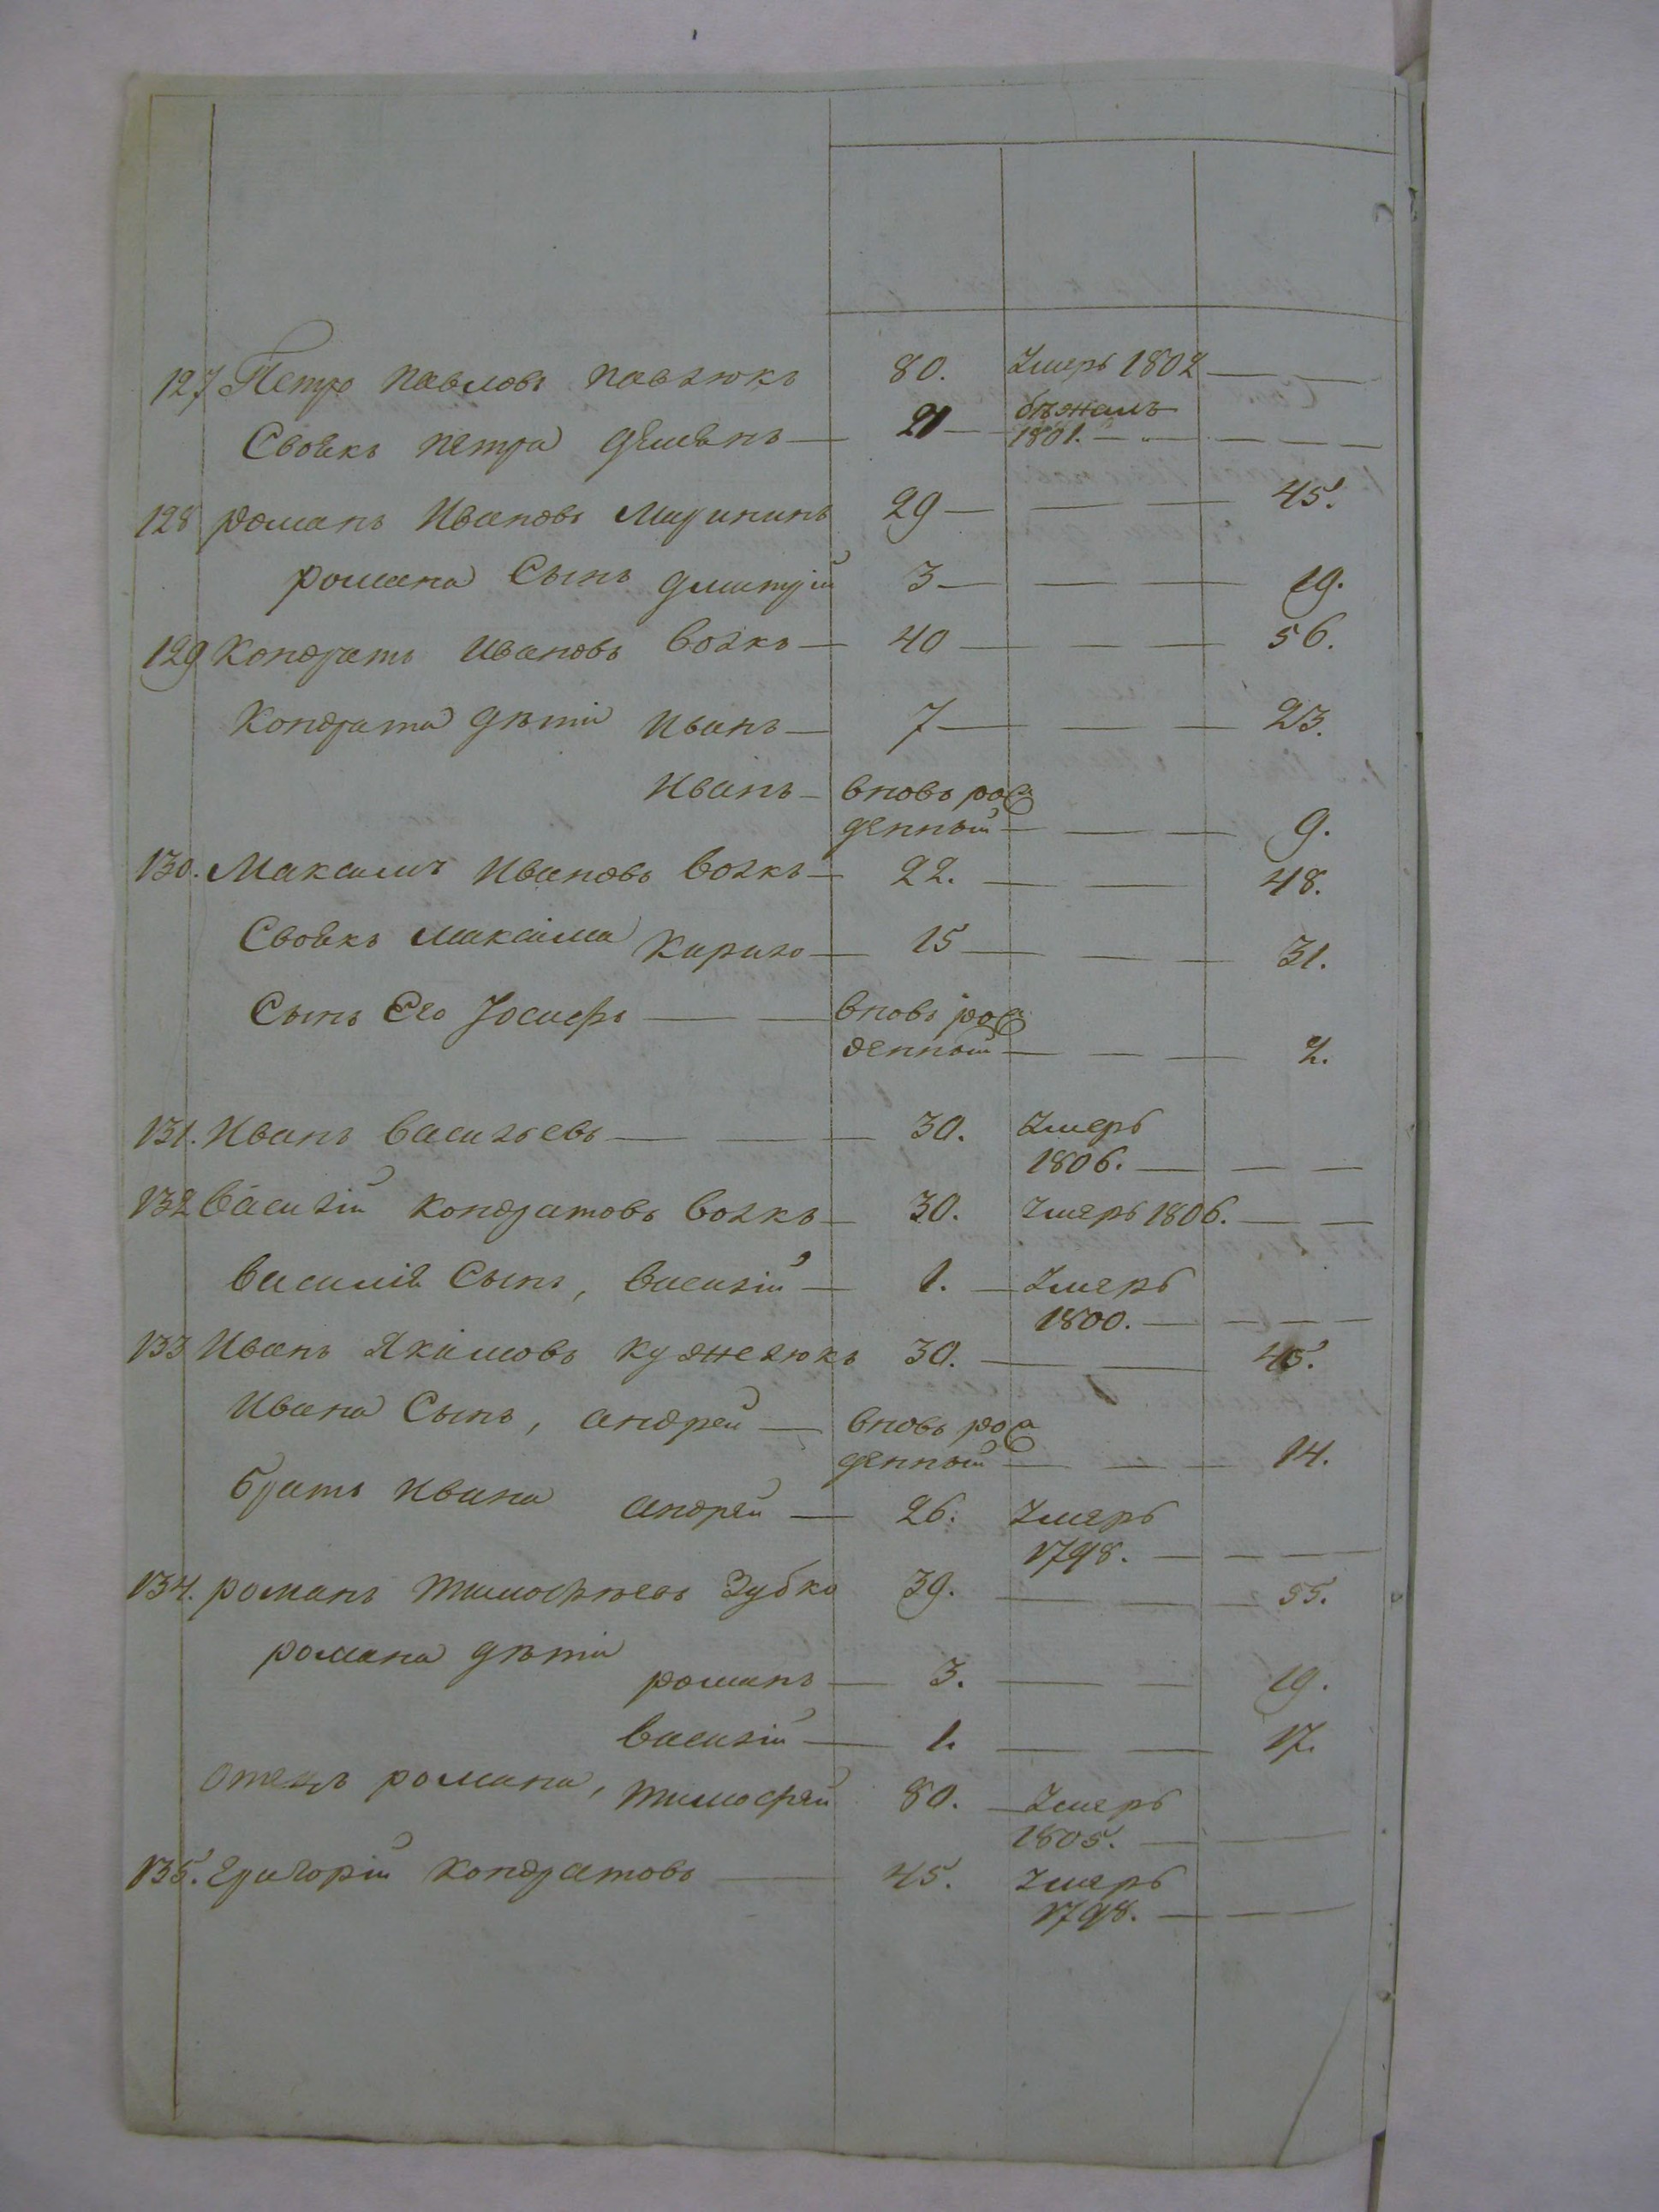 127 Петро Павловъ Павлюкъ 80. Умеръ 1802
Своякъ Петра Демянъ 21 бѣжалъ
1801.
128 романъ Ивановъ 29 45.
романа Сынъ Дмитрій 3 19.
129 Кондратъ Ивановъ Волкъ 40 56.
Кондрата дѣти Иванъ 7 23.
Иванъ вновь рож
денный 9.
130. Максимъ Ивановъ Волкъ 22. 48.
Своякъ Максима Кирило 15 31.
Сынъ Его Іосифъ вновь рож
денный 2.
131. Иванъ Васильевъ 30. Умеръ
1806.
132 Василій Кондратовъ Волкъ 30. Умеръ 1806.
Василія Сынъ, Василій 1. Умеръ
1800.
133 Иванъ Якимовъ Кужелюкъ 30. 45.
Ивана Сынъ, андрей вновь рож
денный 14.
братъ Ивана андрей 26. Умеръ
1798.
134. романъ Тимофѣевъ Зубко 39. 55.
романа дѣти
романъ 3. 19.
Василій 1. 17.
Отецъ романа, Тимофей 80. Умеръ
1805.
135. Григорій Кондратовъ 45. Умеръ
1798.